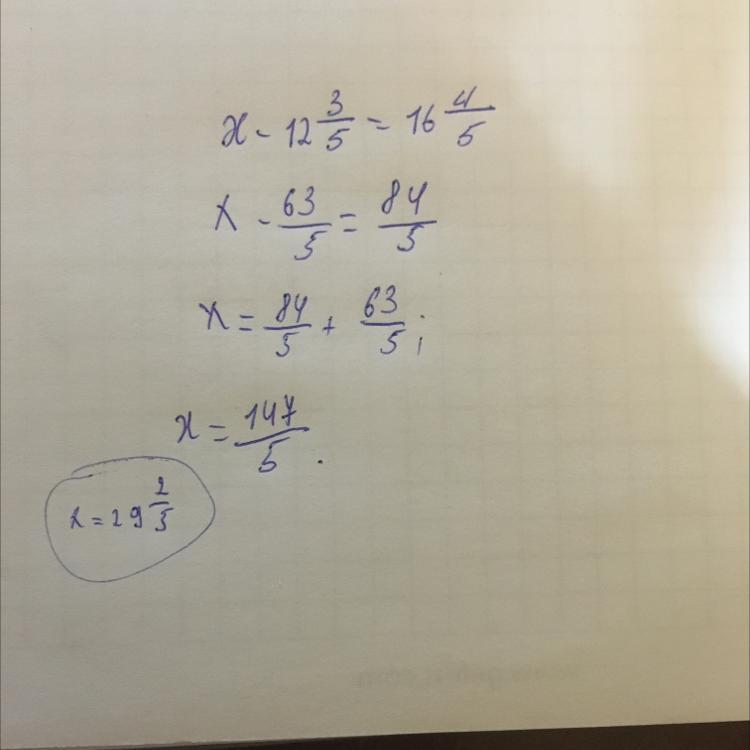 x - 12 3/5 = 16 4/5
x - 63/5 = 84/5
x = 84/5 + 63/5;
x = 147/5.
x = 29 2/5